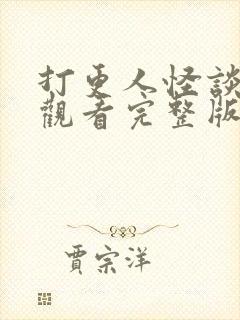 打更人怪談
觀看完整版
賈宗洋